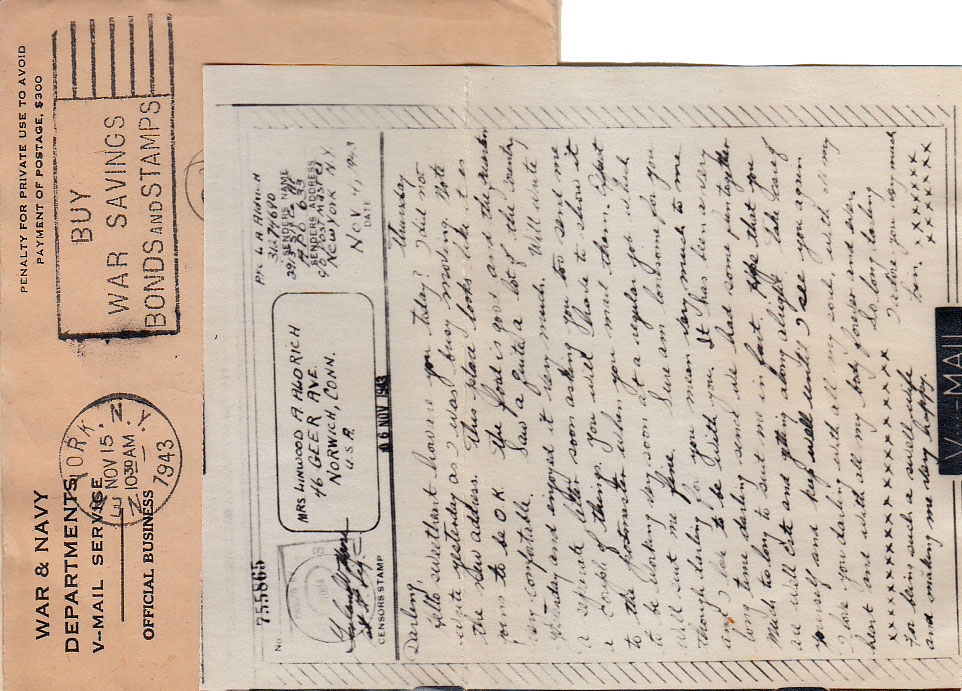 WAR & NAVY
DEPARTMENTS
V--MAIL SERVICE
OFFICIAL BUSINESS
NEW YORK, N.Y.
NOV 15
10 30 AM
1943
BUY
WAR SAVINGS
BONDS AND STAMPS
PENALTY FOR PRIVATE USE TO AVOID
PAYMENT OF POSTAGE, $300
No. 755865
CENSORS STAMP
MRS HINWOOD A ALDRICH
46 GEER AVE.
NORWICH, CONN.
U.S.A
06 NOV 1943
Pfc L A Aldrich
31274670
SENDERS NAME
SENDERS ADDRESS
c/o Postmaster
New York N.Y.
Nov 4, 1943
DATE
Thursday
Darling,
Hello sweetheart how are you today? I did not
write yesterday as I was busy moving. Note
the new address. This place looks like it is
to be O.K. The food is good and the
very comfortable. Saw quite a lot of the country
and enjoyed it very much. Will write
a separate letter soon asking you too send me
a couple of things. You will have to show it
to the Postmaster when you mail them. Expect
to be working very soon at a regular job which
will suit me fine. Sure am lonesome for you
though darling for you mean very much to me
and I love to be with you. It has been a very
long time darling since we had some fun together
much to long to suit me in fact. I hope that you
are well Cete and getting along alright. Take care of
yourself and keep well until I see you again
I love you darling with all my soul with all my
heart and with all my body forever and ever.
So long darling
I adore you very much
for being such a swell wife
and making me very happy
xxxxxxxxxxxxxxx
xxxxxx
xxxxxx
V---MAIL